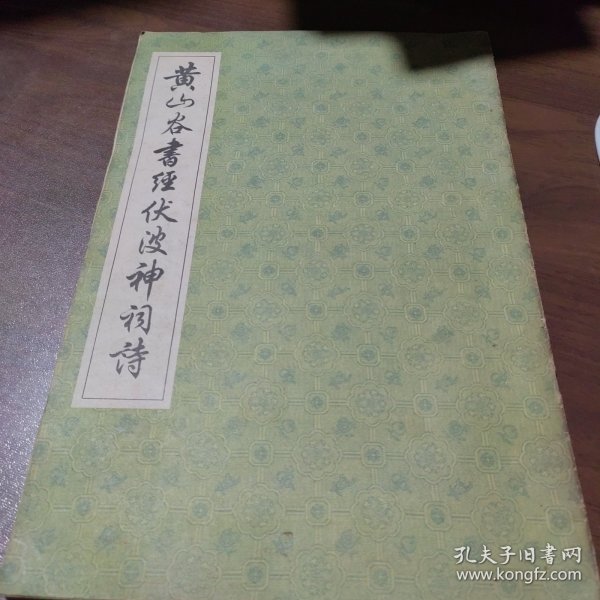 黄山谷書經伏波神祠詩
孔夫子旧書网
www.kongfz.com